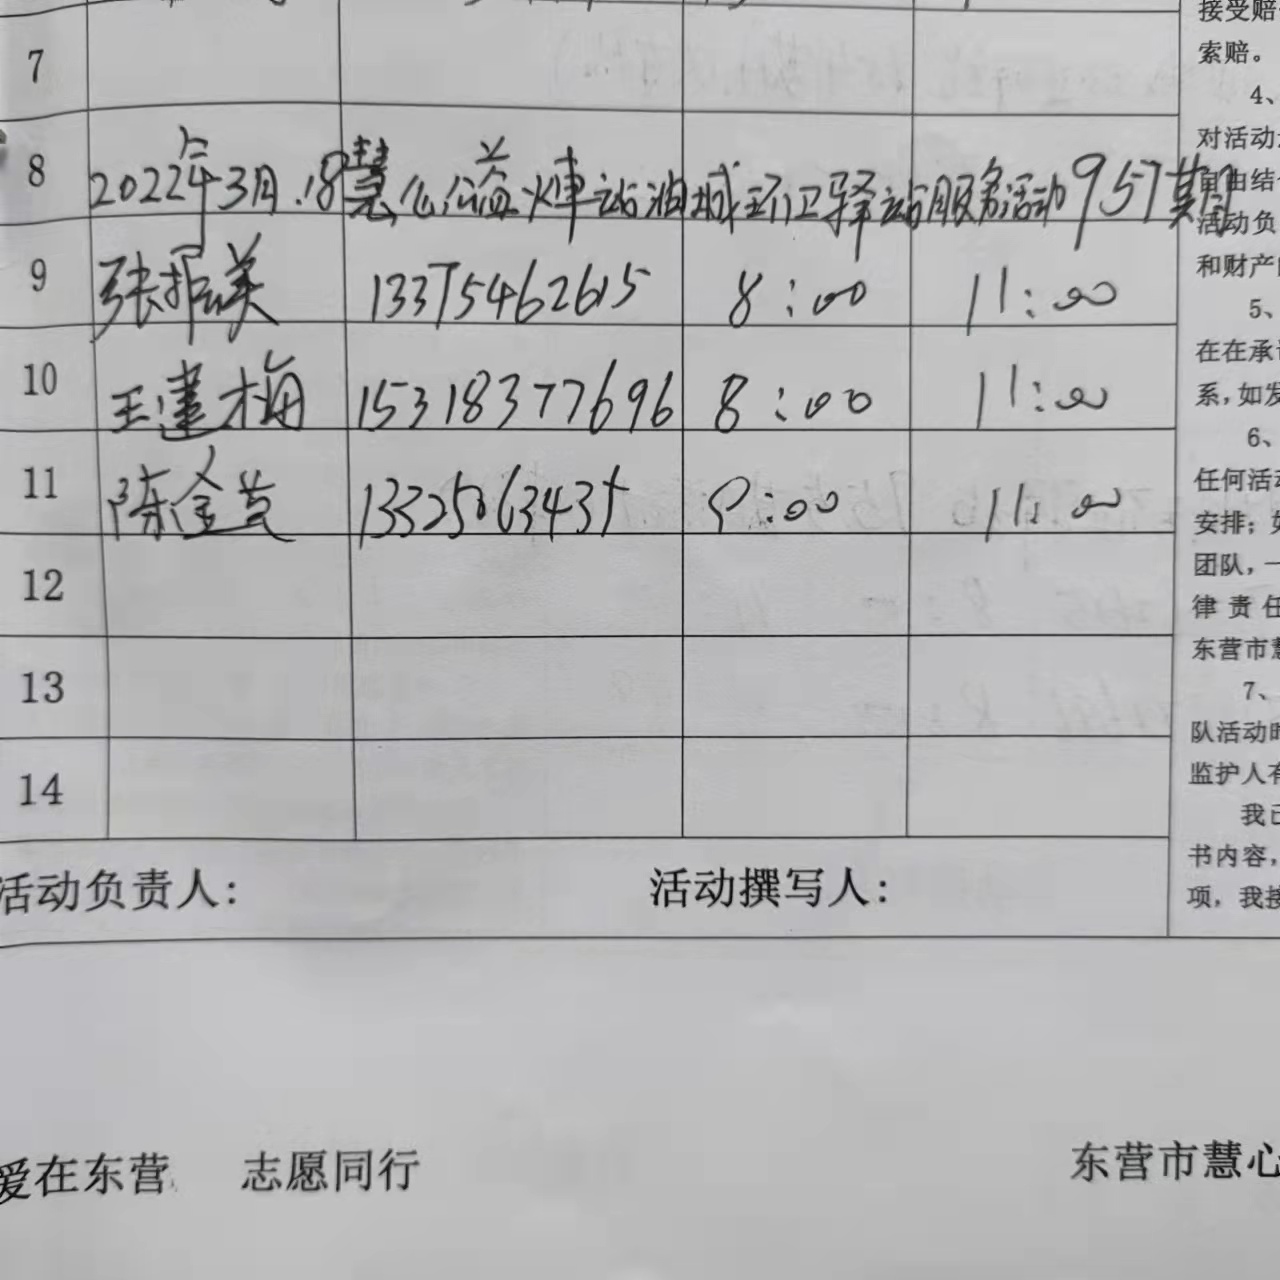 接受赔
索赔。
7
4、
对活动
8 2022年3月.18慧心公益火車站油城环卫驿站服务活动957期
自由结
活动负
9 张振美 13375462615 8:00 11:00
和财产
5、
10 王建梅 15318377696 8:00 11:00
在在承
系,如发
6、
11 陈金芸 13325063435 9:00 11:00
任何活动
安排;如
团队,一
12
律责任
东营市慧
13
7、
队活动时
14
监护人有
我已
书内容,
活动负责人: 活动撰写人:
项,我接
爱在东营 志愿同行 东营市慧心